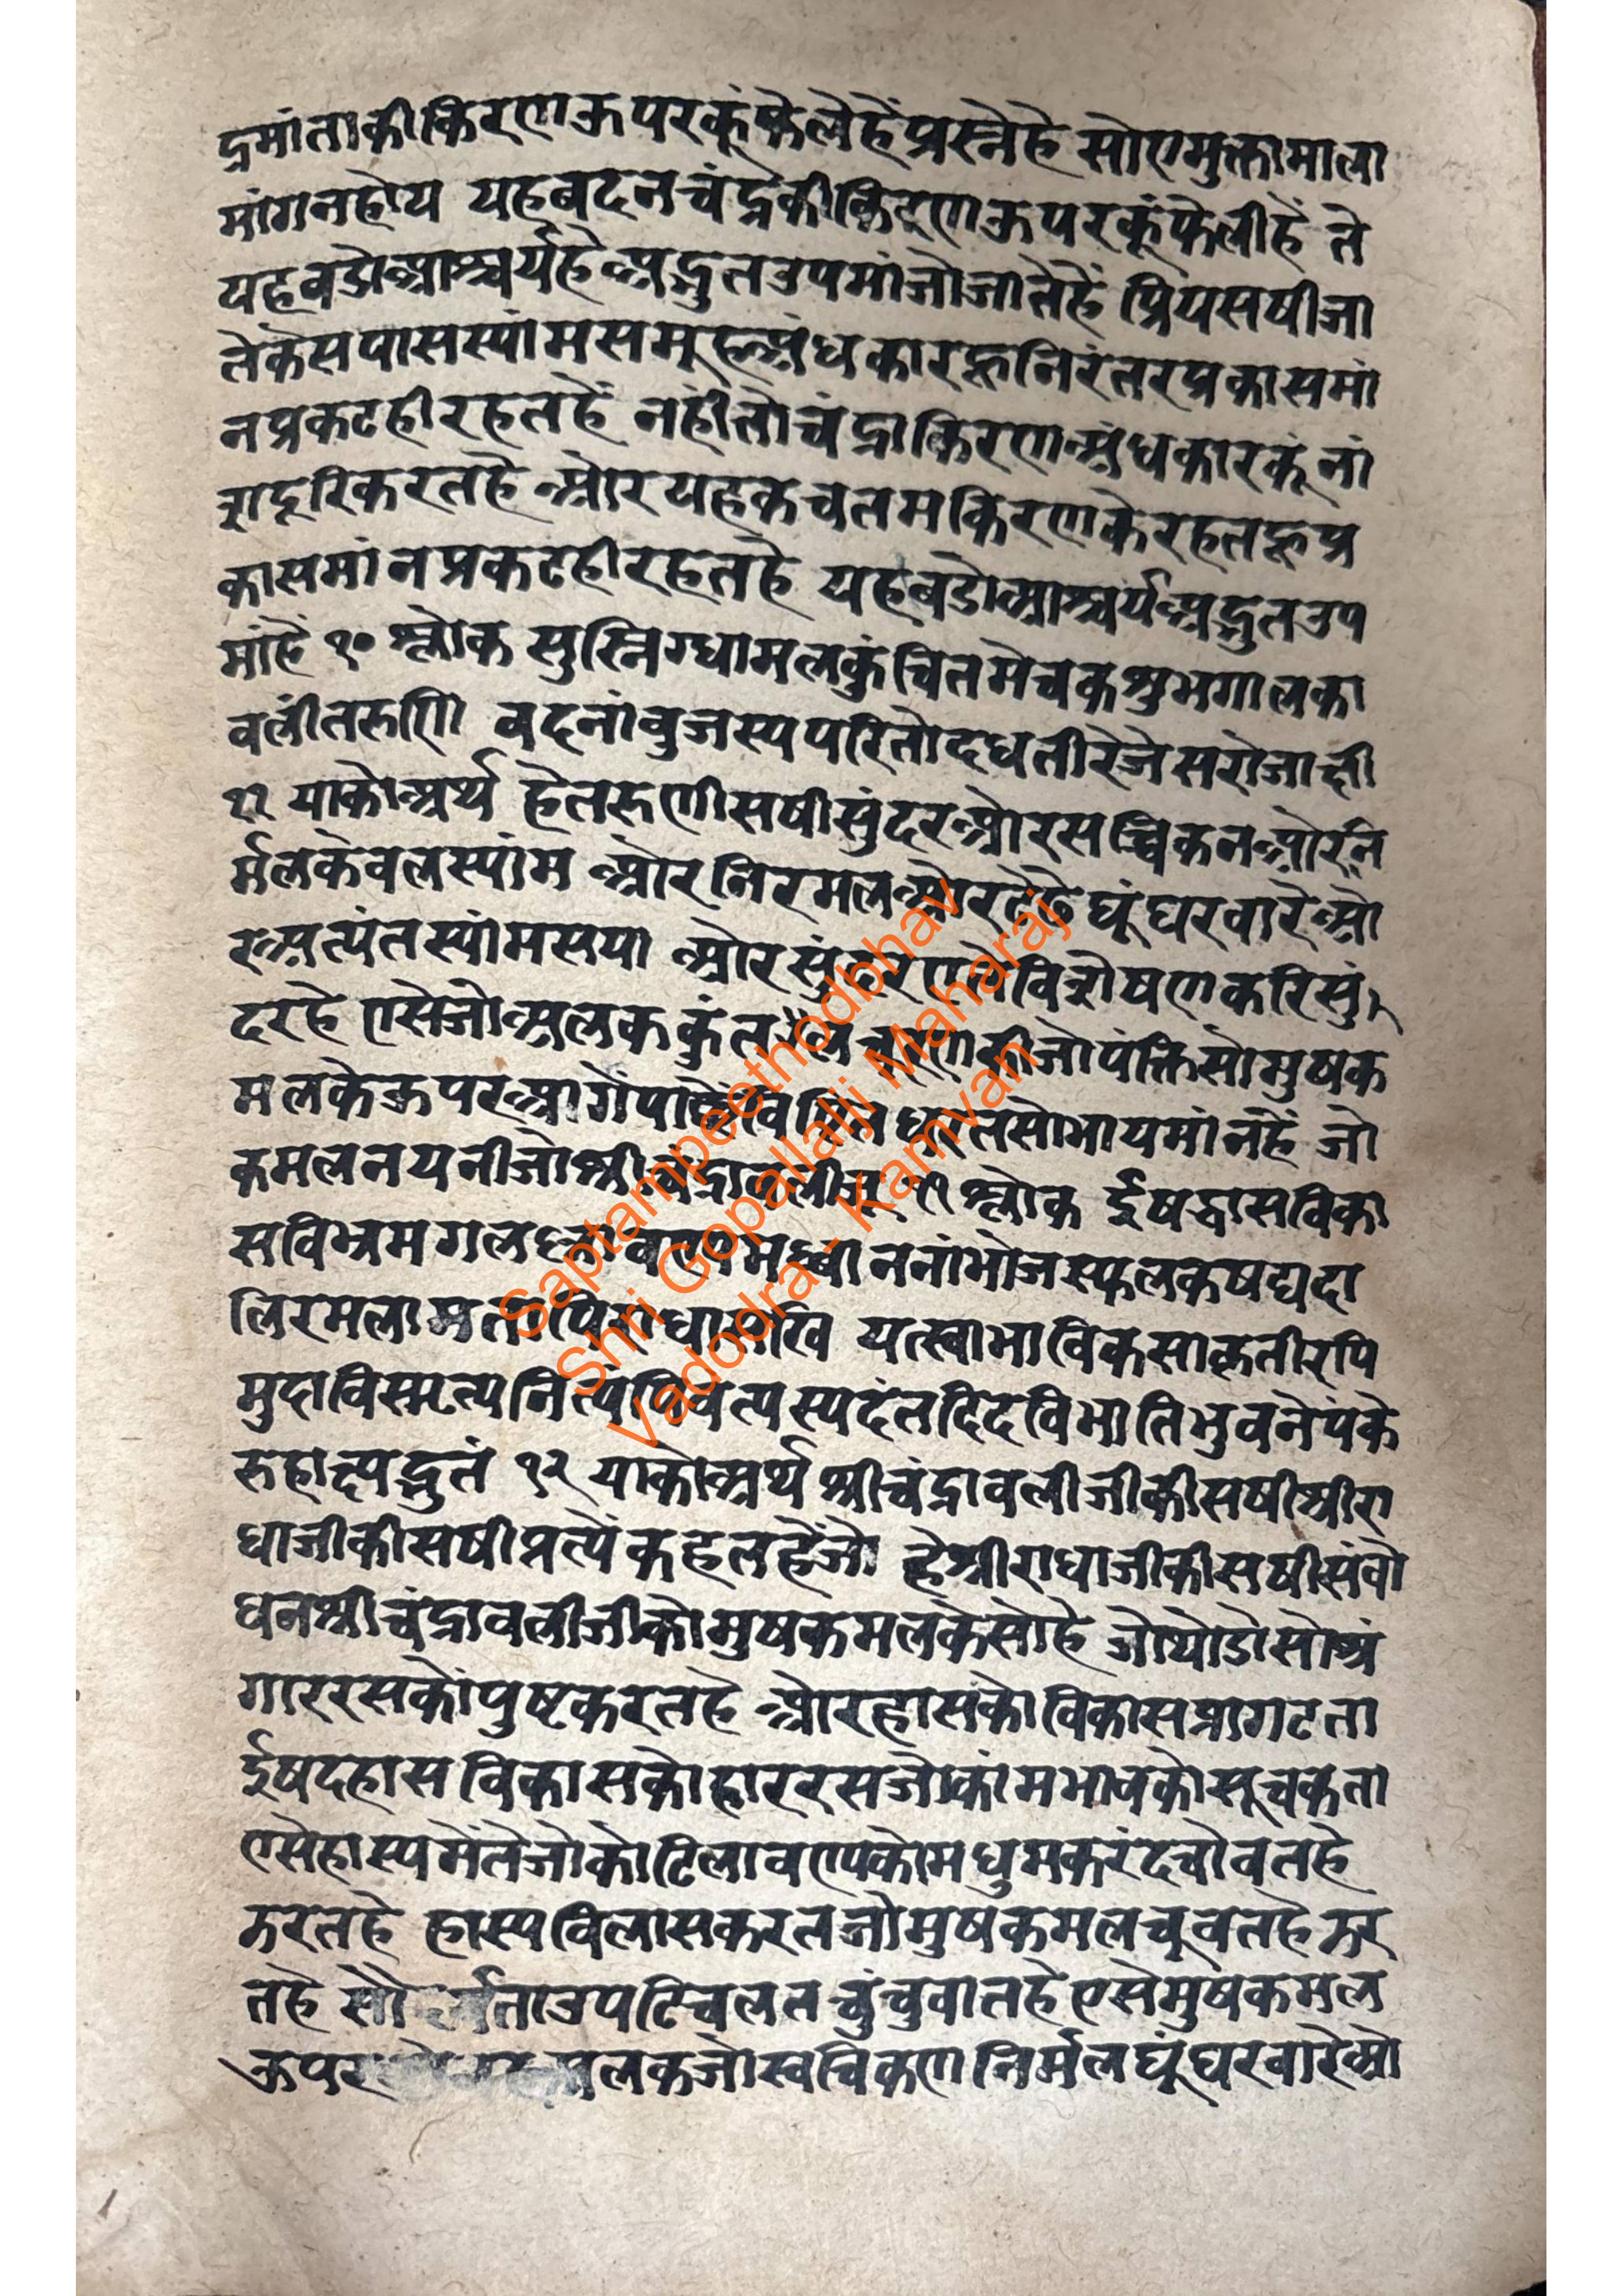 द्रमांताकीकिरणऊपरकूंफैलेहैंप्रस्नेहै सोएमुक्तामाला
मांगनहोय यहबदनचंद्रकीकिरणऊपरकूंफैलीहैं ते
यहबडोआश्चर्यहैअद्भुतउपमांजोजातेहैं प्रियसषीजा
लेकेसपासस्यांमसमूहअंधकारहूनिरंतरप्रकासमां
नप्रकटहीरहतहैं नहींतोचंद्राकिरणअंधकारकूंनां
शदूरिकरतहै औरयहकचतमकिरणकेरहतहूप्र
कासमांनप्रकटहीरहतहै यहबडोआश्चर्यअद्भुतउप
मांहै १० श्लोक सुस्निग्धामलकुंचितमेचकशुभगालका
वलीतरुणि वदनांबुजस्यपरितोदधतीरेजेसरोजाक्षी
११ याकोअर्थ हेतरुणीसषीसुंदरऔरसचिकनऔरनि
र्मलकेवलस्यांम औरनिरमलऔरटेढेघूंघरवारेऔ
रअत्यंतस्यांमसया औरसुंदरएसेविशेषणकरिसुं
दरहै एसेजोअलककुंतल की जोपंक्तिसोमुषक
मलकेऊपरआगेंपाछें सोभायमांनहैं जो
कमलनयनीजोश्रीचंद्रावलीजू ११ श्लोक ईषद्धासविका
सविभ्रमगल मध्वाननांभोज
लिरमला राधासखि यत्स्वाभाविक
मुदाविस्मृत्यनित्यंपिबत्यस्पदंतदिदविभातिभुवनेपंके
रुहात्यद्भुतं १२ याकोअर्थ श्रीचंद्रावलीजीकीसषीश्रीरा
धाजीकीसषीप्रत्यैंकहेतहैंजो हेश्रीराधाजीकीसषीसंबो
धनश्रीचंद्रावलीजीकोमुषकमलकेसोहै जोथोडोसोश्रृं
गाररसकोंपुष्टकरतहै औरहासकोविकासप्रागटता
ईषदहासविकासकोहाररसजोकांमभावकोसूचकता
एसेहास्यमेंतेजोकोटिलावण्यकोमधुमकरंदचोवतहै
झरतहै हास्यविलासकरतजोमुषकमलचूवतहैझर
तहै सो ताउपटिचलतचुंचुवातहैएसेमुषकमल
ऊपर अलकजोस्वचिकणनिर्मलघूंघरवारेओ
Saptampeethodbhav
Shri Gopallalji Maharaj
Vadodra - Kamvan